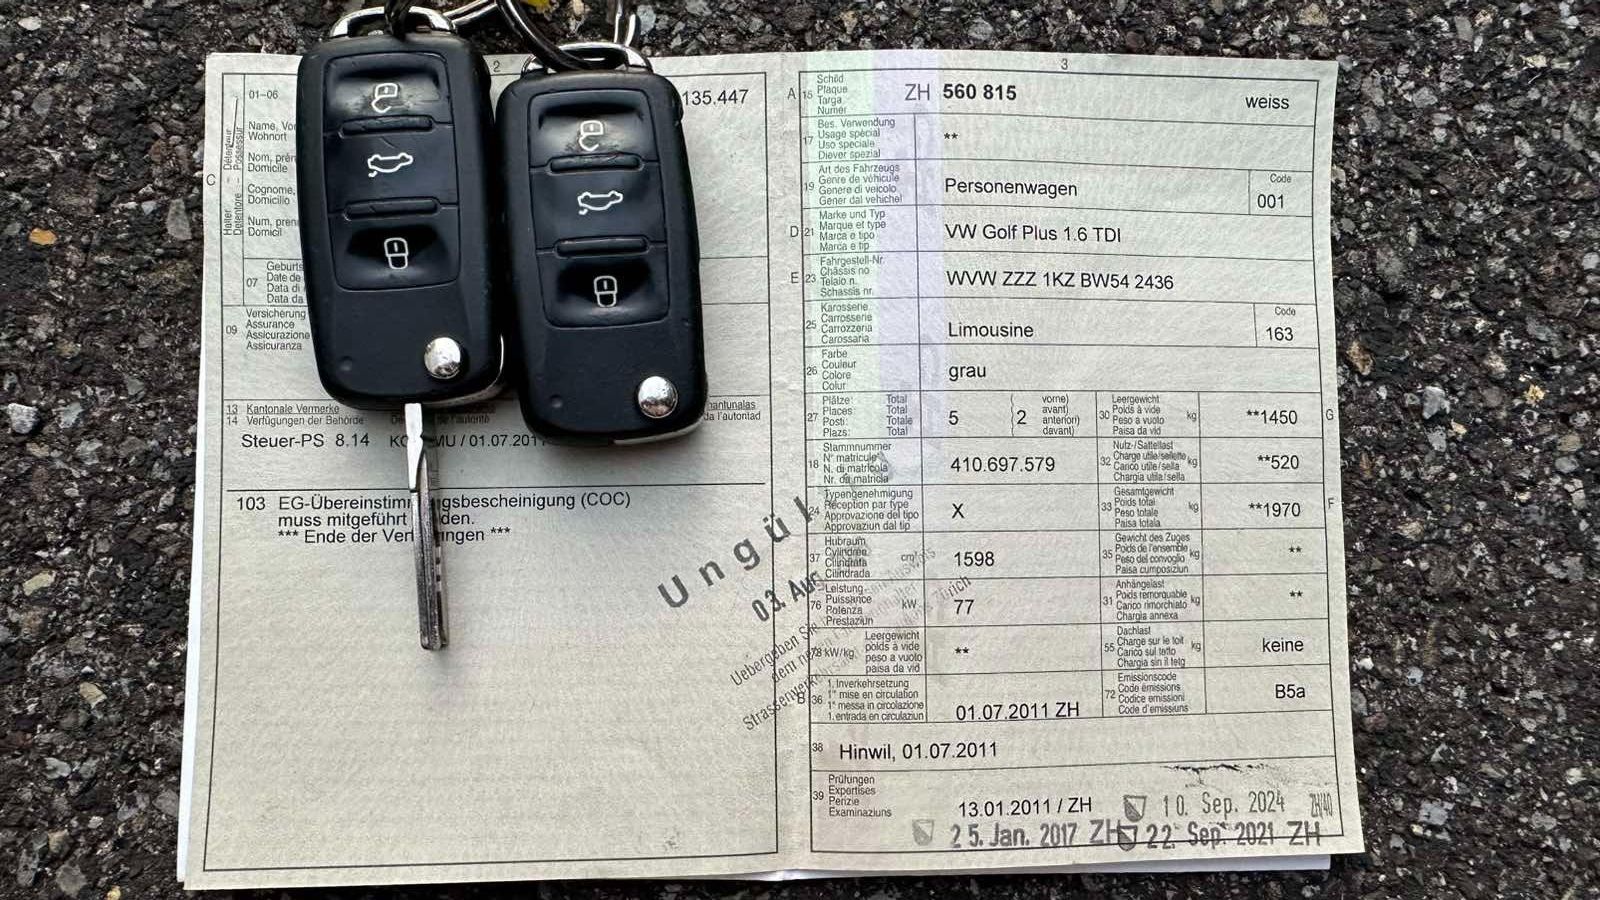 2
01-06
135.447
Name, Vor
Wohnort
Nom, prén
Domicile
Cognome,
Domicilio
Num, pren
Domicil
C
07
Geburts
Date de
Data di
Data da
09
Versicherung
Assurance
Assicurazione
Assicuranza
13 Kantonale Vermerke
14 Verfügungen der Behörde
Steuer-PS 8.14
MU / 01.07.201
103 EG-Übereinstim gsbescheinigung (COC)
muss mitgeführt den.
*** Ende der Ver ngen ***
Ungül
03. Aug
Uebergeben Sie
3
A 15 Schild
Plaque
Targa
Numer
ZH 560 815
weiss
17 Bes. Verwendung
Usage spécial
Uso speciale
Diever spezial
**
19 Art des Fahrzeugs
Genre de véhicule
Genere di veicolo
Gener dal vehichel
Personenwagen
Code
001
D 21 Marke und Typ
Marque et type
Marca e tipo
Marca e tip
VW Golf Plus 1.6 TDI
E 23 Fahrgestell-Nr.
Châssis no
Telaio n.
Schassis nr.
WVW ZZZ 1KZ BW54 2436
25 Karosserie
Carrosserie
Carrozzeria
Carossaria
Limousine
Code
163
26 Farbe
Couleur
Colore
Colur
grau
27 Plätze: Total
Places: Total
Posti: Totale
Plazs: Total
5 (2 vorne)
avant)
anteriori)
davant)
30 Leergewicht
Poids à vide
Peso a vuoto
Paisa da vid
kg
**1450
G
18 Stammnummer
N° matricule
N. di matricola
Nr. da matricla
410.697.579
32 Nutz-/Sattellast
Charge utile/sellette
Carico utile/sella
Chargia utila/sella
kg
**520
24 Typengenehmigung
Réception par type
Approvazione del tipo
Approvaziun dal tip
X
33 Gesamtgewicht
Poids total
Peso totale
Paisa totala
kg
**1970
F
37 Hubraum
Cylindrée
Cilindrata
Cilindrada
cm³
1598
35 Gewicht des Zuges
Poids de l'ensemble
Peso del convoglio
Paisa cumposiziun
kg
**
76 Leistung
Puissance
Potenza
Prestaziun
kW
77
31 Anhängelast
Poids remorquable
Carico rimorchiato
Chargia annexa
kg
**
78 kW/kg Leergewicht
poids à vide
peso a vuoto
paisa da vid
**
55 Dachlast
Charge sur le toit
Carico sul tetto
Chargia sin il tetg
kg
keine
B 36 1. Inverkehrsetzung
1re mise en circulation
1a messa in circolazione
1. entrada en circulaziun
01.07.2011 ZH
72 Emissionscode
Code émissions
Codice emissioni
Code d'emissiuns
B5a
38 Hinwil, 01.07.2011
39 Prüfungen
Expertises
Perizie
Examinaziuns
13.01.2011 / ZH
10. Sep. 2024
25. Jan. 2017 ZH
22. Sep. 2021 ZH